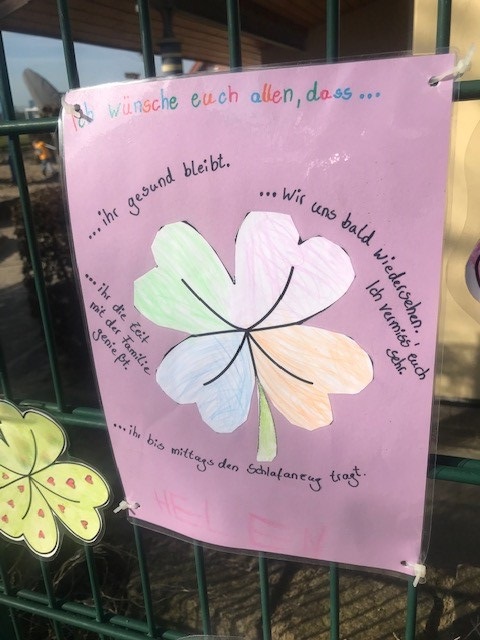 Ich wünsche euch allen, dass...
...ihr gesund bleibt.
...wir uns bald wiedersehen.
Ich vermiss euch
sehr.
...ihr die Zeit
mit der Familie
genießt.
...ihr bis mittags den Schlafanzug tragt.
HELEN